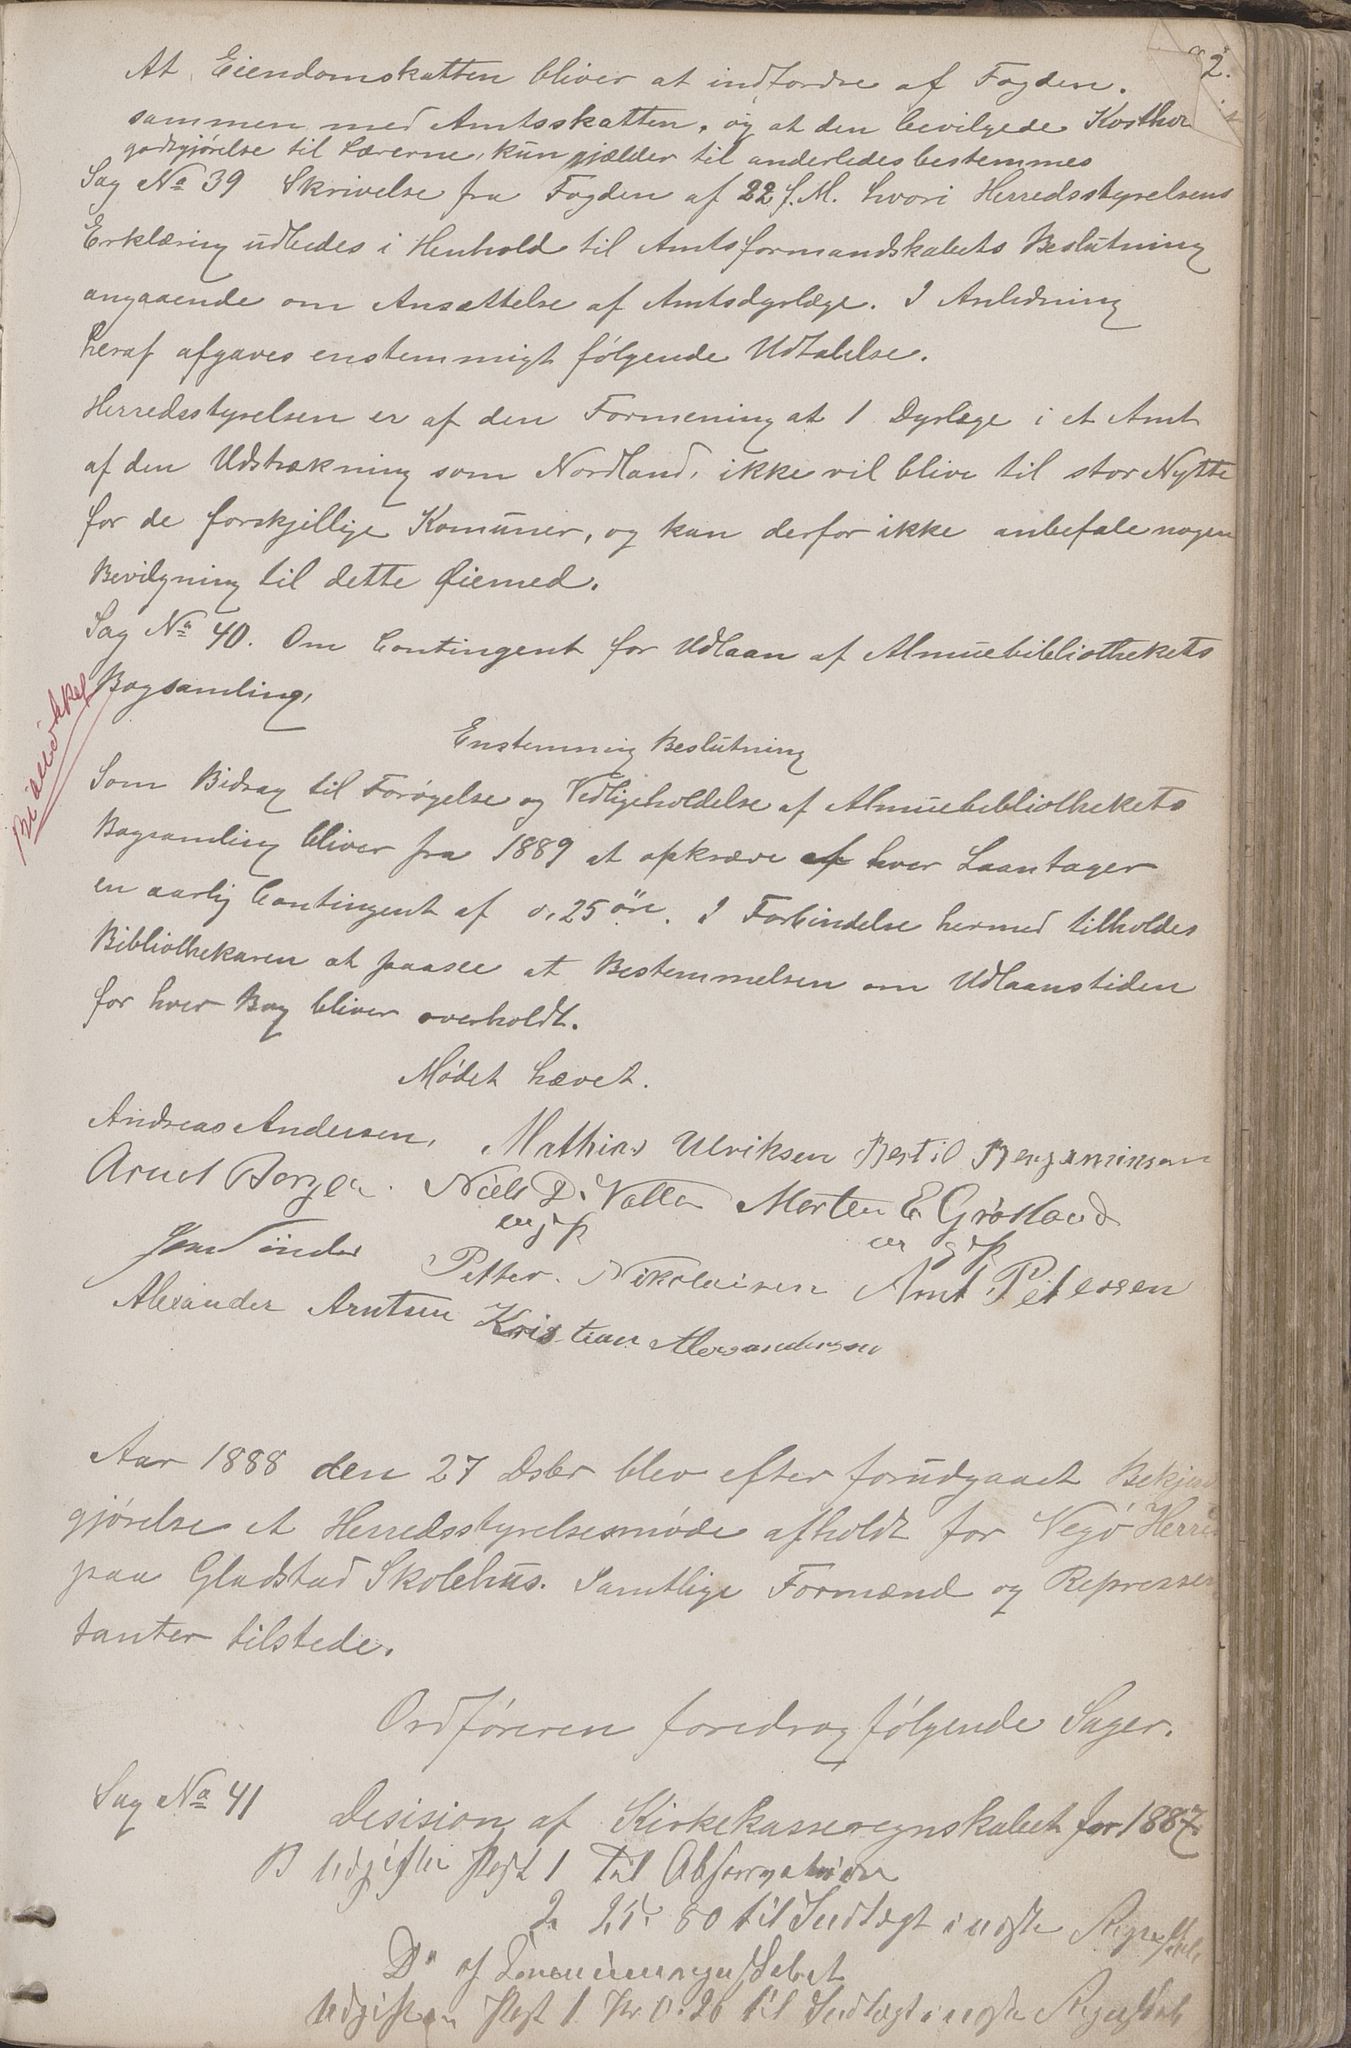 2.
At Eiendomskatten bliver at indfordre af Fogden.
sammen med Amtsskatten. og at den bevilgede Kosthol
godtgjørelse til Lærerne, kun gjælder til anderledes bestemmes
Sag No 39 Skrivelse fra Fogden af 22 f. M. hvori Herredsstyrelsens
Erklæring udbedes i Henhold til Amtsformandskabets Beslutning
angaaende om Ansættelse af Amtsdyrlæge. I Anledning
heraf afgaves enstemmigt følgende Udtalelse.
Herredsstyrelsen er af den Formening at 1 Dyrlæge i et Amt
af den Udstrækning som Nordland, ikke vil blive til stor Nytte
for de forskjellige Komuner, og kan derfor ikke anbefale nogen
Bevilgning til dette Øiemed.
Sag No 40. Om Contingent for Udlaan af Almuebibliothekets
Bogsamling,
Enstemmig Beslutning
Som Bidrag til Forøgelse og Vedligeholdelse af Almuebibliothekets
Bogsamling bliver fra 1889 at opkræve af hver Laantager
en aarlig Contingent af 0,25 öre. I Forbindelse hermed tilholdes
Bibliothekaren at paasee at Bestemmelsen om Udlaanstiden
for hver Bog bliver overholdt.
Mødet hævet.
Andreas Andersen, Mathias Ulriksen Bertil Benjaminsen
Arnet Borgen. Niels D. Valla Morten E Grøstland
Petter. Nikolaisen Arnt Petersen
Alexander Arntsen Kristian Alexandersen
Aar 1888 den 27 Dsbr blev efter forudgaaet Bekjend
gjørelse et Herredsstyrelsesmøde afholdt for Vegø Herred
paa Gladstad Skolehus. Samtlige Formænd og Represen
tanter tilstede.
Ordføreren foredrog følgende Sager.
Sag No 41 Desision af Kirkekasseregnskabet for 1887
B Udgifter Post 1 Til Observation
2 25. 80 til Indtægt i næste Regnskab
Udgiften Post 1 Kr 0.26 til Indtægt i næste Regnskab